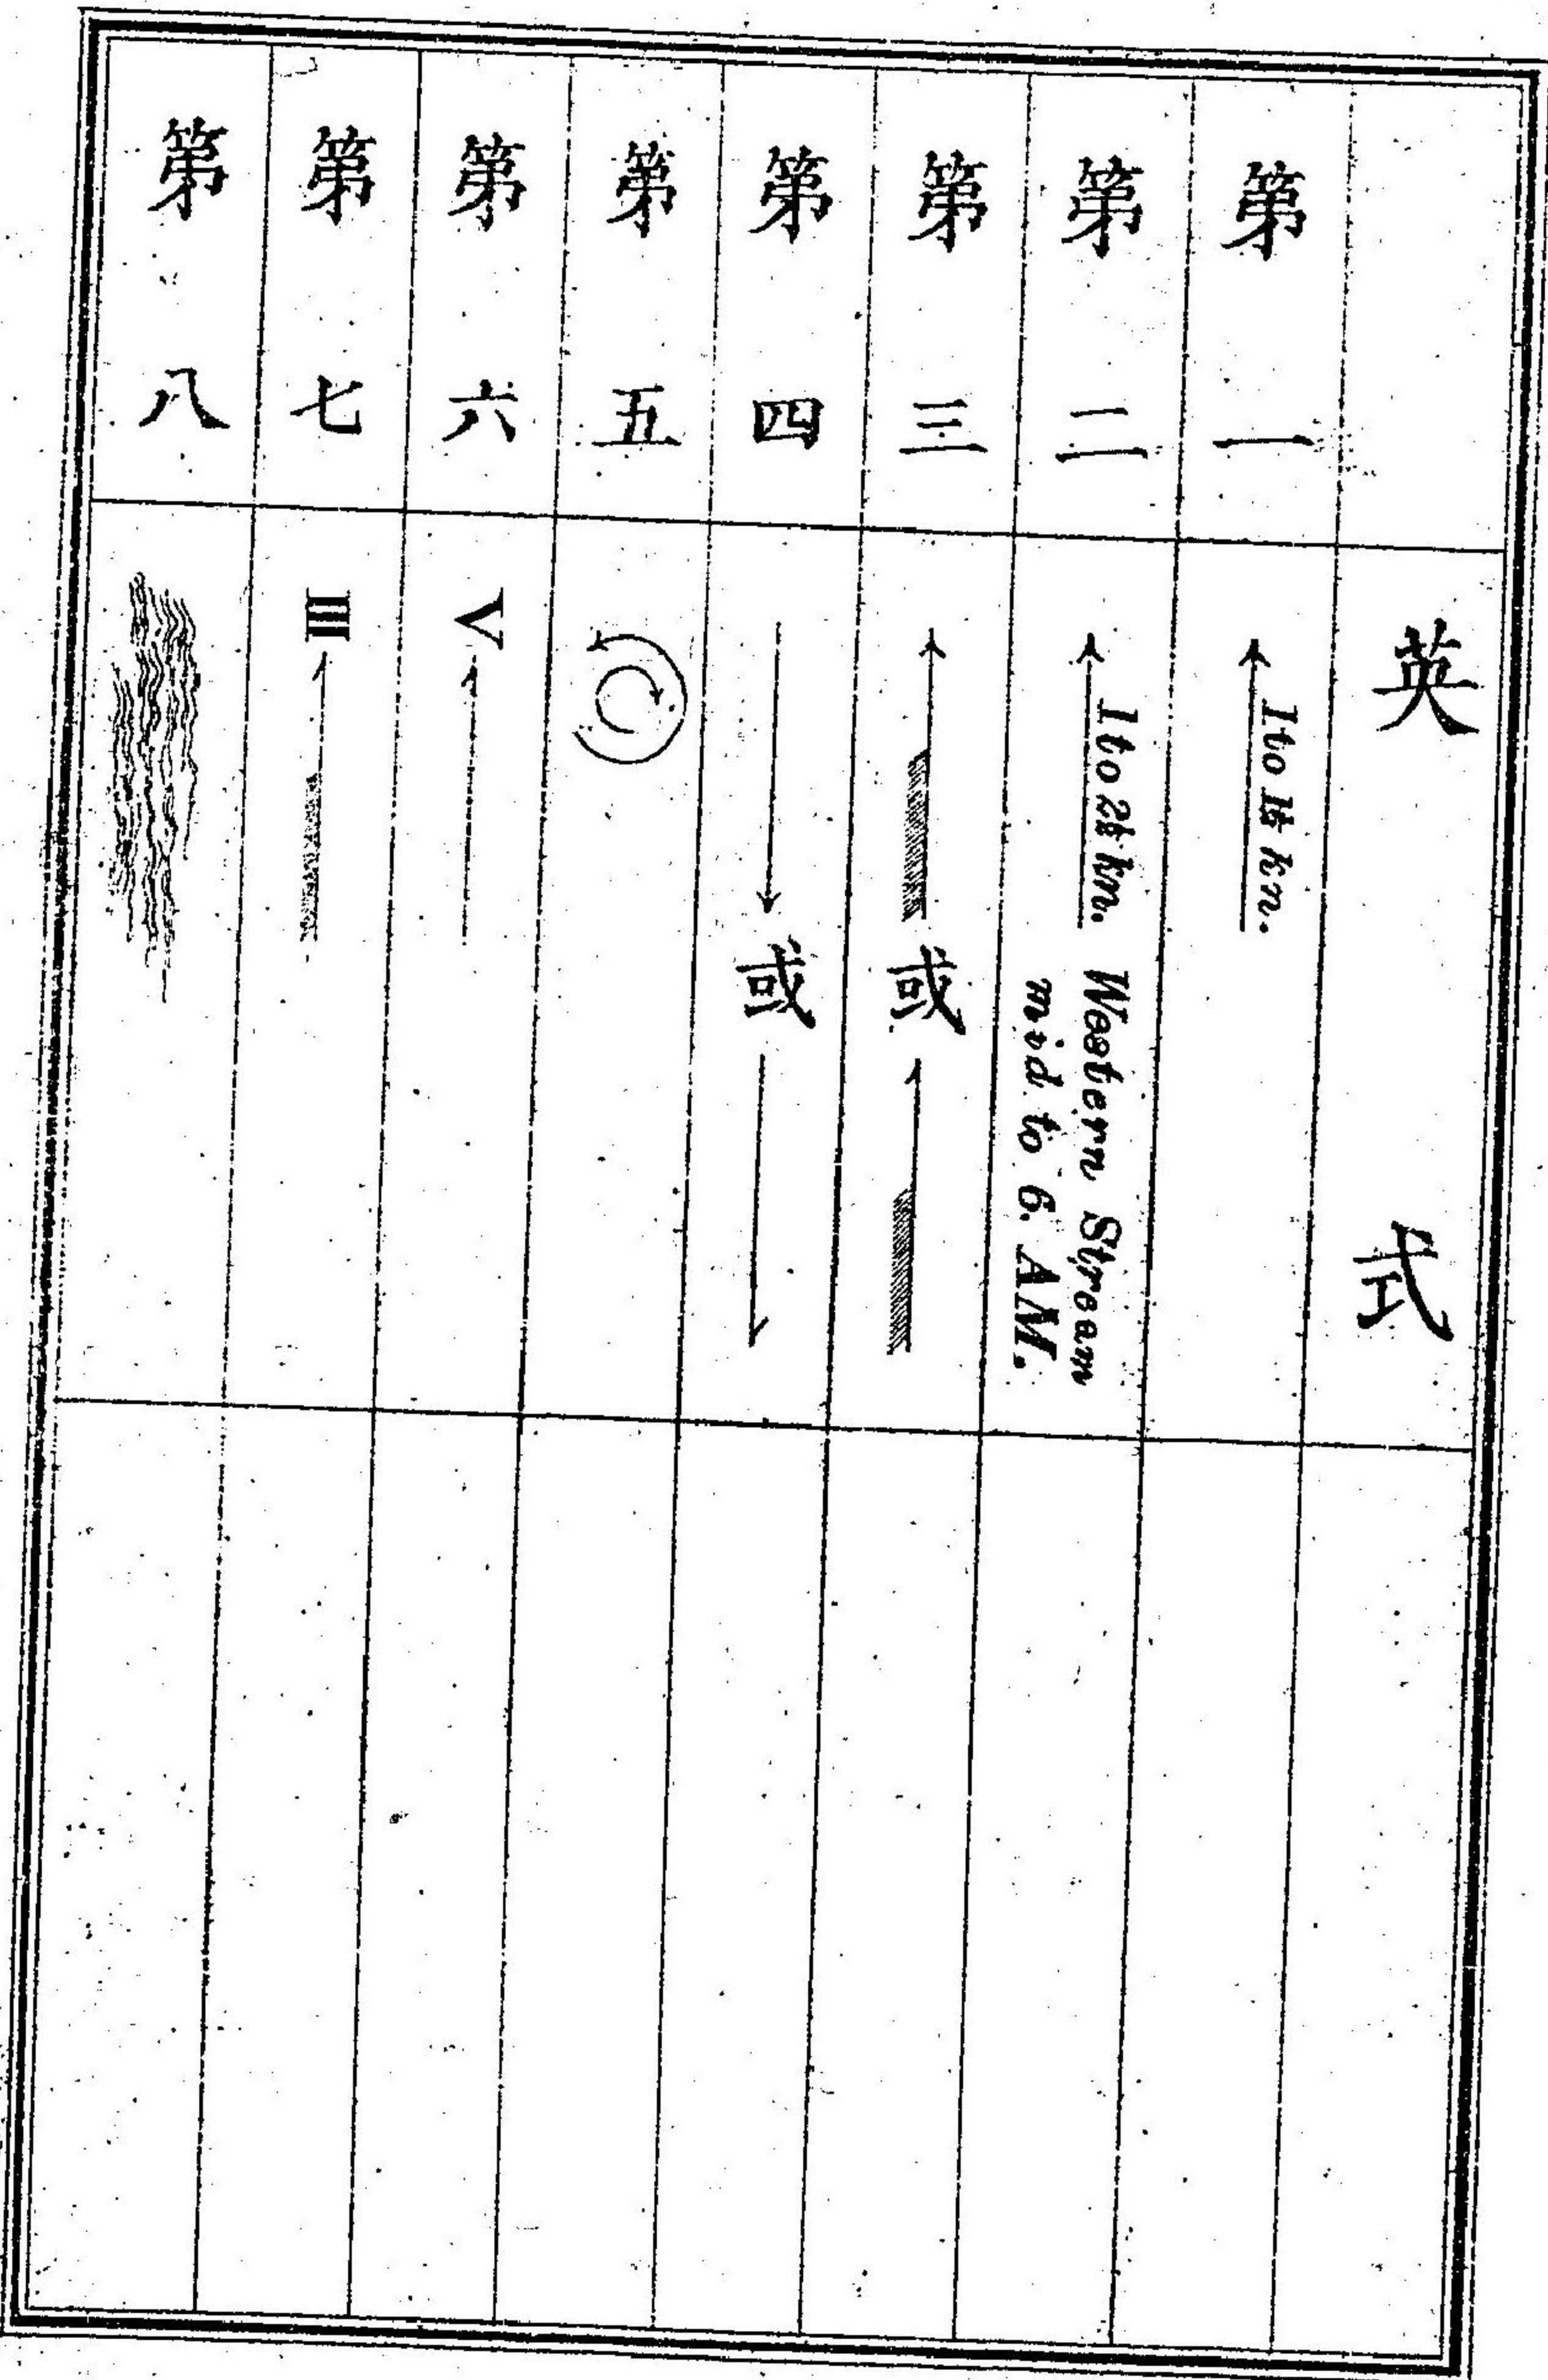 英式
第一
1 to 1½ kn.
第二
1 to 2½ kn. Western Stream
mid to 6. AM.
第三
或
第四
或
第五
第六
V
第七
III
第八